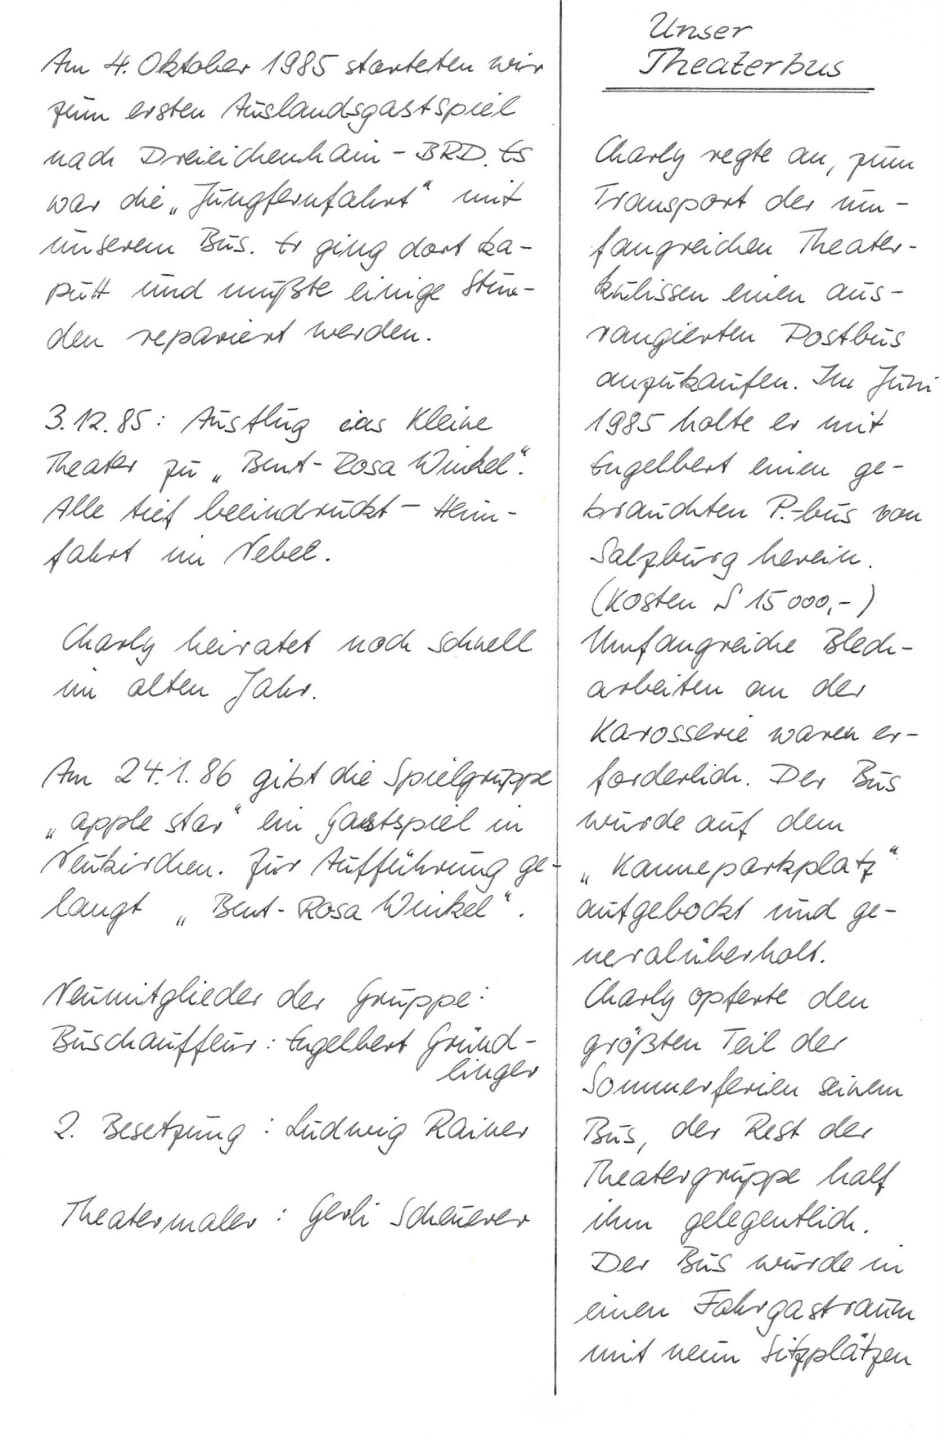 Am 4. Oktober 1985 starteten wir
zum ersten Auslandsgastspiel
nach Dreieichenhain - BRD. Es
war die „Jungfernfahrt" mit
unserem Bus. Er ging dort ka-
putt und mußte einige Stun-
den repariert werden.
3.12.85: Ausflug ins Kleine
Theater zu „Bent-Rosa Winkel".
Alle tief beeindruckt - Heim-
fahrt im Nebel.
Charly heiratet noch schnell
im alten Jahr.
Am 24.1.86 gibt die Spielgruppe
„apple star" ein Gastspiel in
Neukirchen. Zur Aufführung ge-
langt „Bent-Rosa Winkel".
Neumitglieder der Gruppe:
Buschauffeur: Engelbert Gründ-
linger
2. Besetzung: Ludwig Rainer
Theatermaler: Gerli Scheuerer
Unser
Theaterbus
Charly regte an, zum
Transport der um-
fangreichen Theater-
kulissen einen aus-
rangierten Postbus
anzukaufen. Im Juni
1985 holte er mit
Engelbert einen ge-
brauchten P.-bus von
Salzburg herein.
(Kosten S 15000,-)
Umfangreiche Blech-
arbeiten an der
Karosserie waren er-
forderlich. Der Bus
wurde auf dem
„Kanneparkplatz"
aufgebockt und ge-
neralüberholt.
Charly opferte den
größten Teil der
Sommerferien seinem
Bus, der Rest der
Theatergruppe half
ihm gelegentlich.
Der Bus wurde in
einen Fahrgastraum
mit neun Sitzplätzen